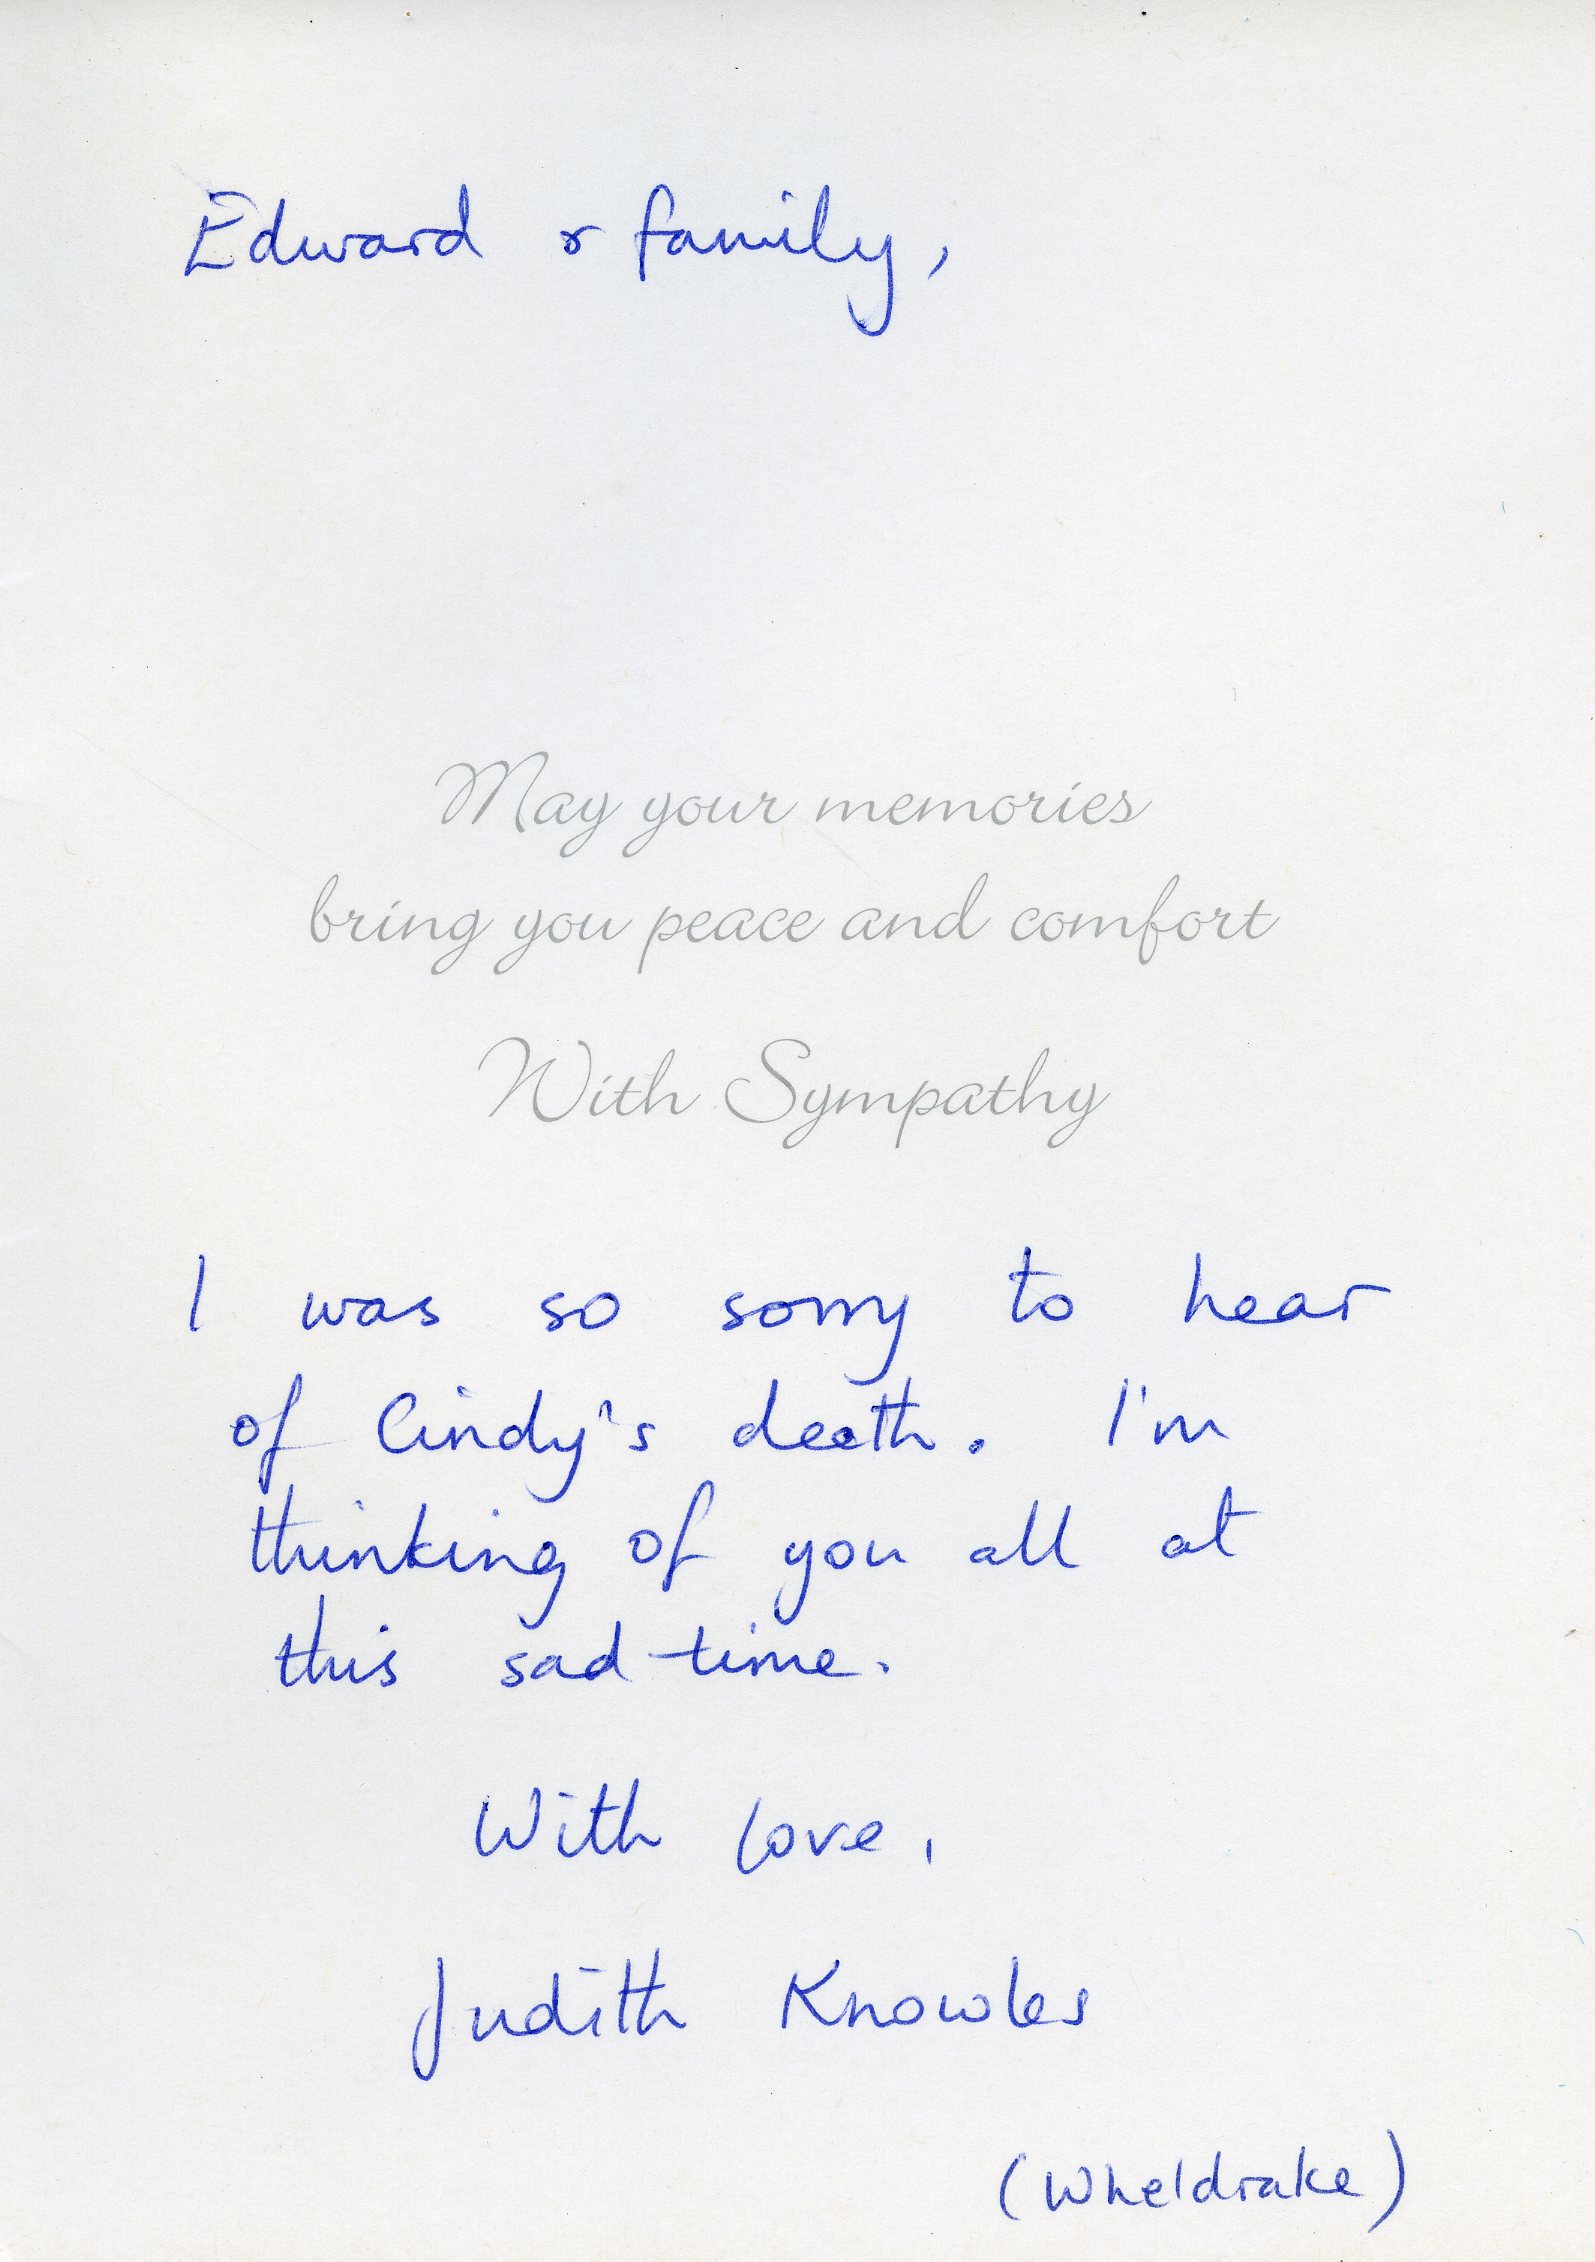 Edward & family,
May your memories
bring you peace and comfort
With Sympathy
I was so sorry to hear
of Cindy's death. I'm
thinking of you all at
this sad time.
With love,
Judith Knowles
(Wheldrake)